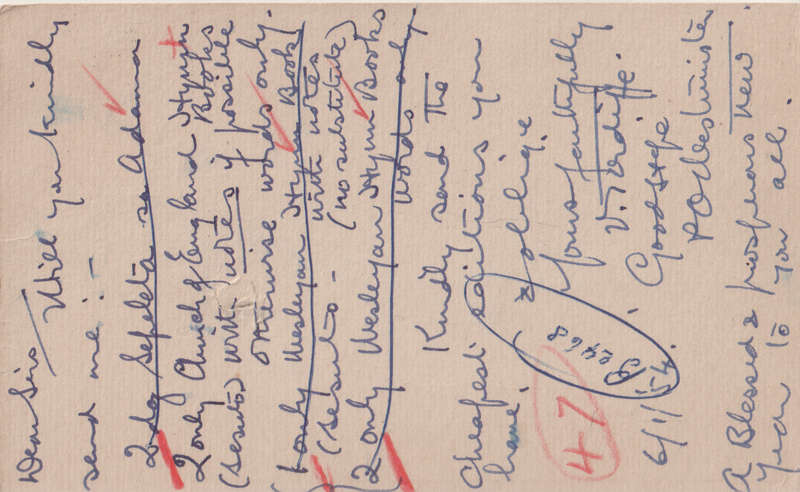 Dear Sirs
Will you kindly
send me :-
2 doz Sepeleta sa Adama
2 only Church of England Hymn
Books
(Sesuto) with notes if possible
otherwise words only.
1 only Wesleyan Hymn Book
(Sesuto - with notes
(no substitute)
2 only Wesleyan Hymn Books
words only
Kindly send the
Cheapest editions you
have.
& oblige
Yours faithfully
Goodstefe
P O Westminster
47
6/1/54.
A Blessed & prosperous new
Year to you all.